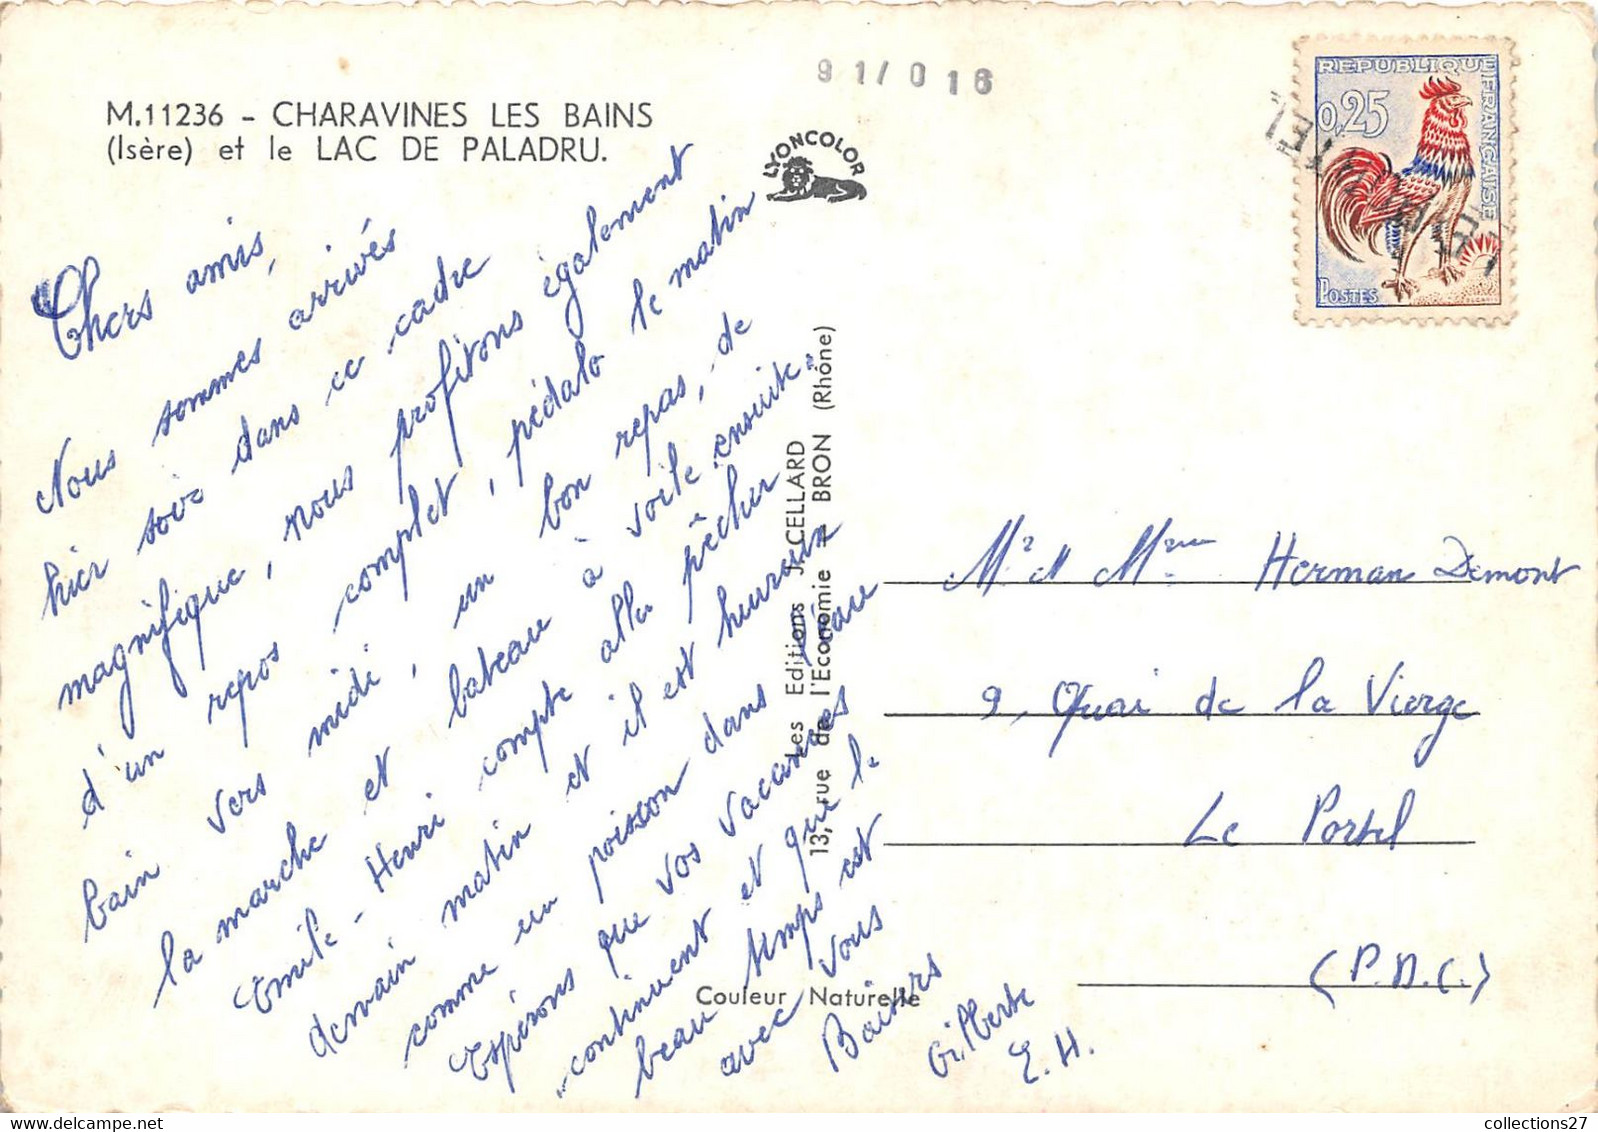 91/016
M.11236 - CHARAVINES LES BAINS
(Isère) et le LAC DE PALADRU.
LYONCOLOR
REPUBLIQUE FRANÇAISE
0,25
POSTES
Chers amis,
Nous sommes arrivés
hier soir dans ce cadre
magnifique, nous profitons également
d'un repos complet, pédalo le matin
bain vers midi, un bon repas, de
la marche et bateau à voile ensuite.
Emile-Henri compte aller pêcher
demain matin et il est heureux
comme un poisson dans l'eau
Espérons que vos vacances
continuent et que le
beau temps est
avec vous
Baisers
Gilberte
E.H.
Les Editions J. CELLARD
13, rue de l'Economie - BRON (Rhône)
Couleur Naturelle
Mr et Mme Herman Demont
9, Quai de la Vierge
Le Portel
(P.D.C.)
collections27